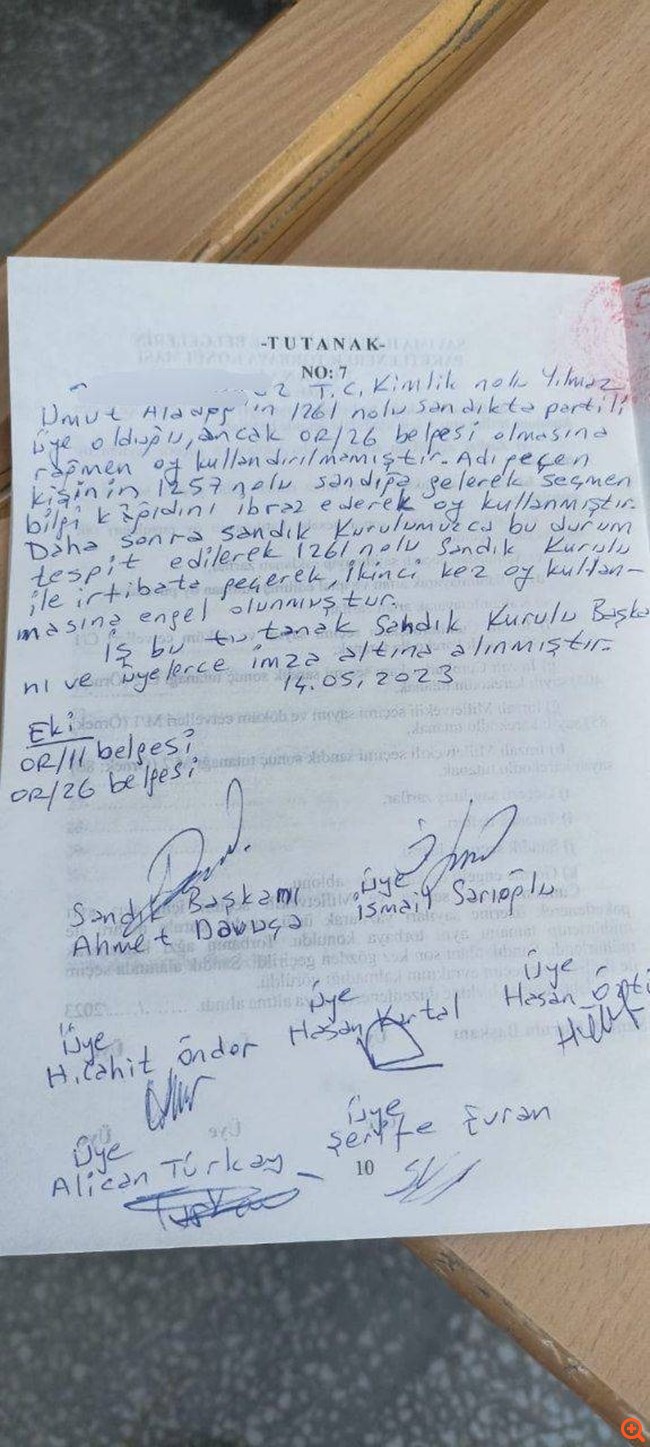 -TUTANAK-
NO: 7
T.C. Kimlik nolu Yılmaz
Umut 1261 nolu sandıkta partili
üye olduğu, ancak OR/26 belgesi olmasına
rağmen oy kullandırılmamıştır. Adı geçen
kişinin 1257 nolu sandığa gelerek seçmen
bilgi kağıdını ibraz ederek oy kullanmıştır.
Daha sonra Sandık Kurulumuzca bu durum
tespit edilerek 1261 nolu Sandık Kurulu
ile irtibata geçerek, ikinci kez oy kullan-
masına engel olunmuştur.
İş bu tutanak Sandık Kurulu Başka
nı ve üyelerce imza altına alınmıştır.
14.05.2023
Eki
OR/11 belgesi
OR/26 belgesi
Sandık Başkanı
Ahmet Davulga
Üye
İsmail Sarıoğlu
Üye
H. Cahit Öndor
Üye
Hasan Kurtal
Üye
Hasan
Üye
Alican Türkay
Üye
Şerife Evran
10